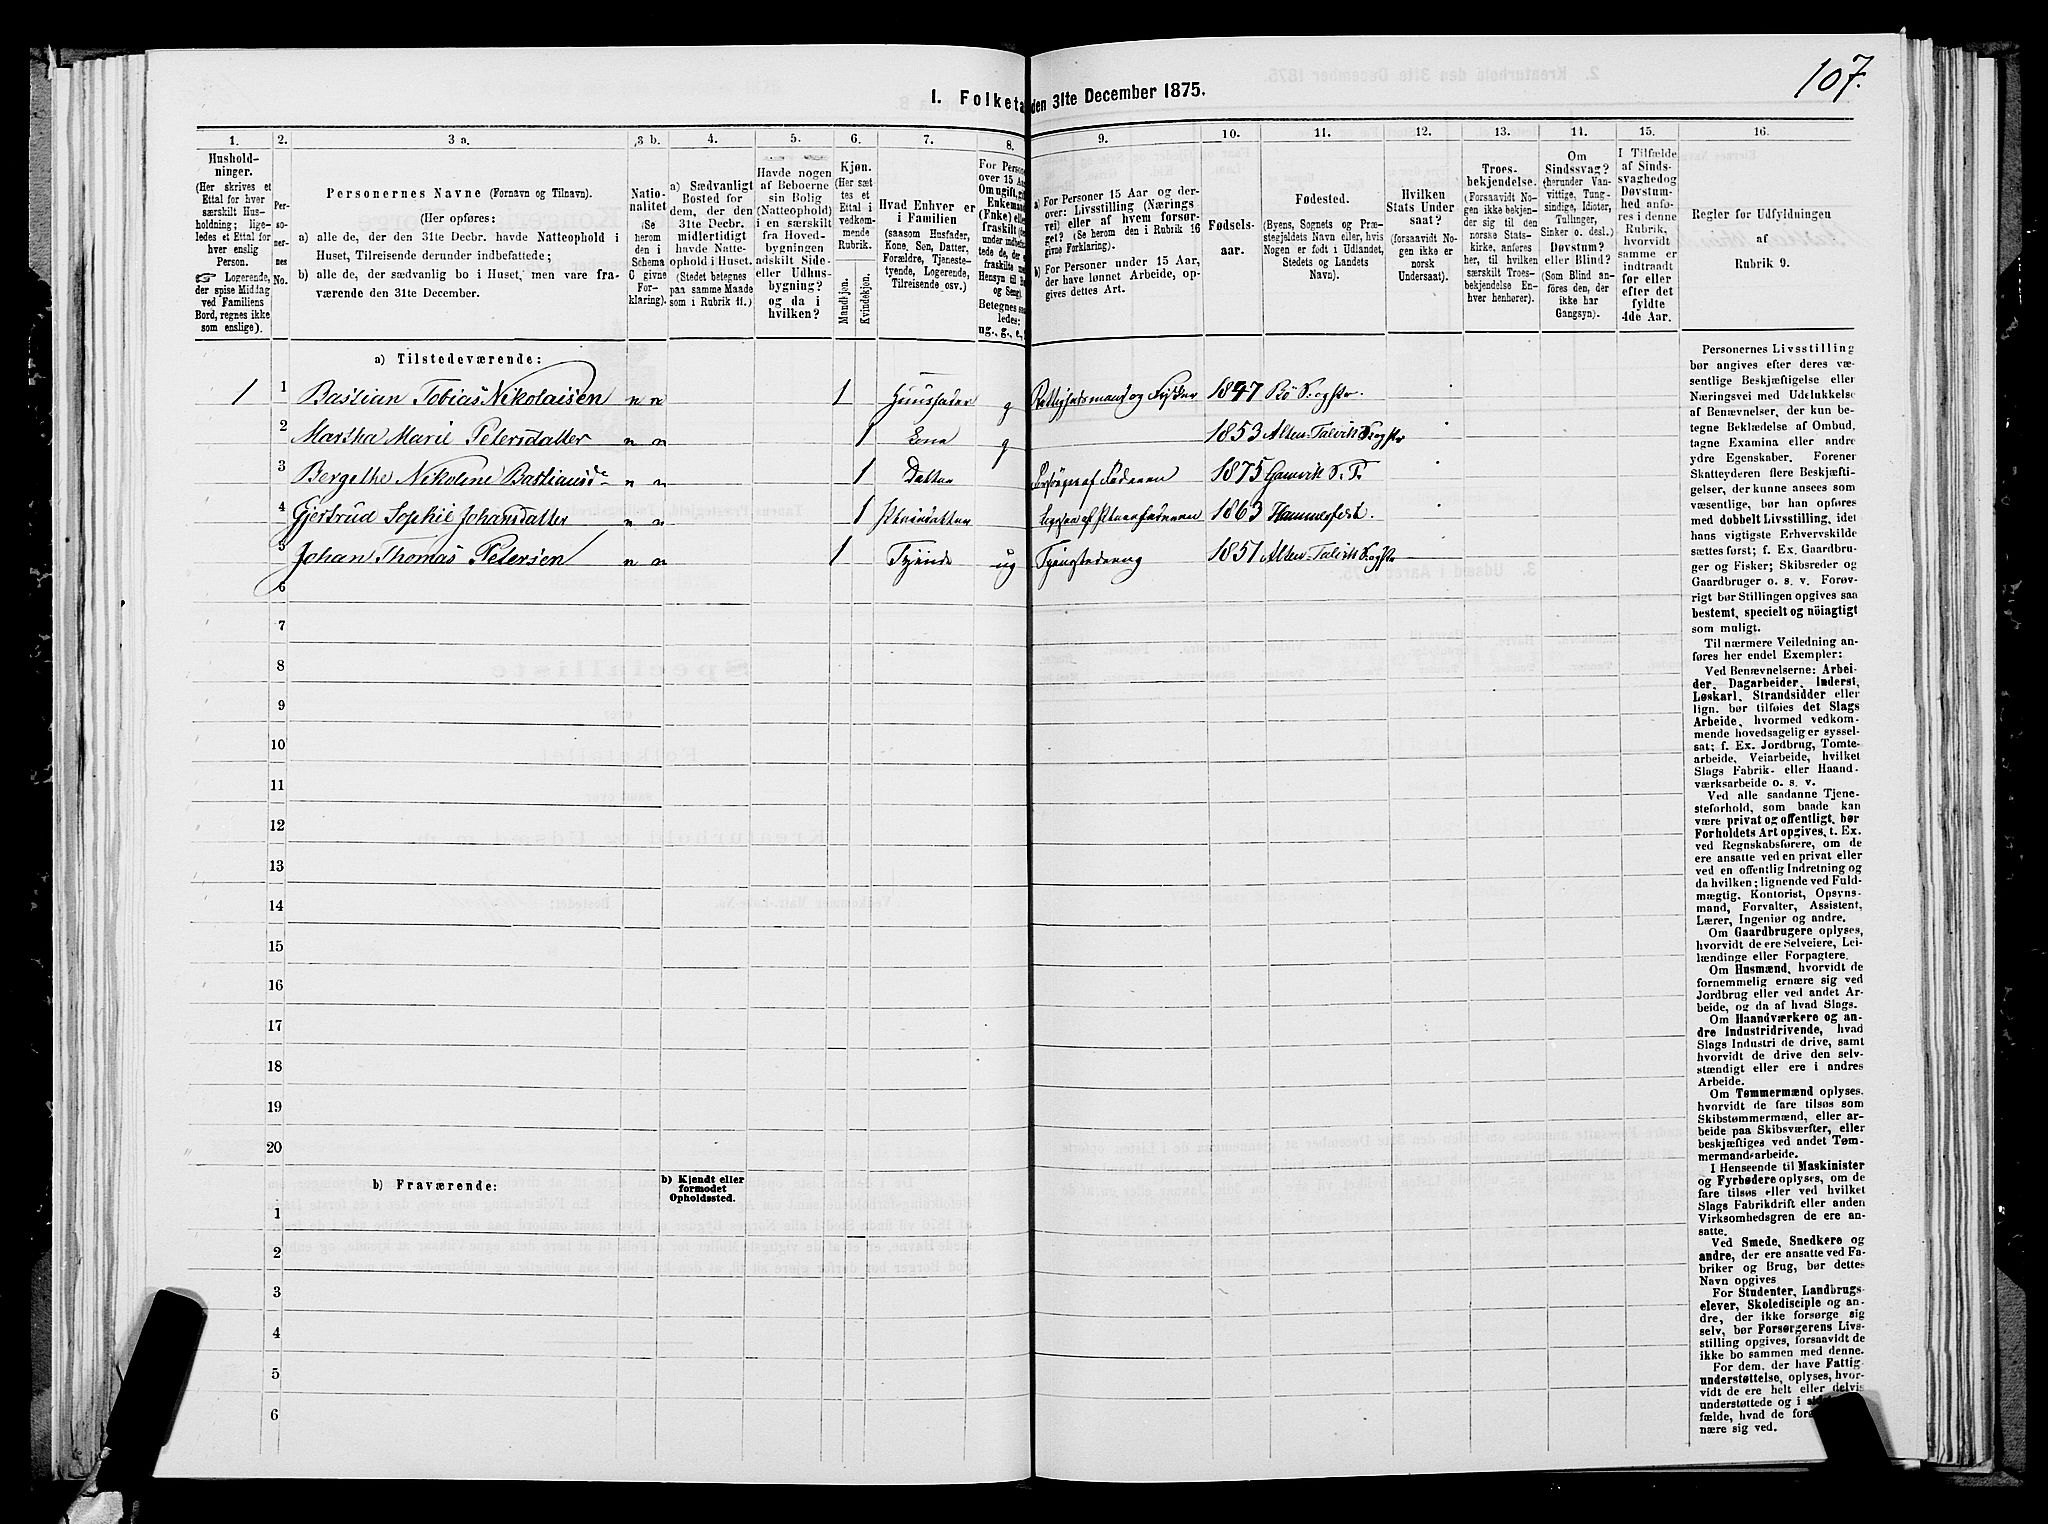 107.
I. Folketa
den 31te December 1875.
1. 2. 3 a. 3 b. 4. 5. 6. 7. 8. 9. 10. 11. 12. 13. 14. 15. 16.
Hushold-
ninger.
(Her skrives et
Ettal for hver
særskilt Hus-
holdning; lige-
ledes et Ettal for
hver enslig
Person.
☞ Logerende,
der spise Middag
ved Familiens
Bord, regnes ikke
som enslige).
Per-
so-
ner-
nes
No.
Personernes Navne (Fornavn og Tilnavn).
(Her opføres:
a) alle de, der den 31te Decbr. havde Natteophold i
Huset, Tilreisende derunder indbefattede;
b) alle de, der sædvanlig bo i Huset, men vare fra-
værende den 31te December.
Natio-
nalitet
(Se
herom
den i
Schema
G givne
For-
klaring).
a) Sædvanligt
Bosted for
dem, der den
31te Decbr.
midlertidigt
havde Natte-
ophold i Huset.
(Stedet betegnes
paa samme Maade
som i Rubrik 11.)
Havde nogen
af Beboerne
sin Bolig
(Natteophold)
i en særskilt
fra Hoved-
bygningen
adskilt Side-
eller Udhus-
bygning?
og da i
hvilken?
Kjøn.
(Her sæt
tes et
Ettal i
vedkom-
mende
Rubrik.
Mandkjøn.
Kvindekjøn.
Hvad Enhver er
i Familien
(saasom Husfader,
Kone, Søn, Datter,
Forældre, Tjeneste-
tyende, Logerende,
Tilreisende osv.)
For Person
over 15 Aar
Om ugift, gift
Enkemand
(Enke) eller
fraskilt
Betegnes saa
ledes:
ug., g., e.,
a) For Personer 15 Aar og der-
over: Livsstilling (Nærings
vei) eller af hvem forsør-
get? (Se herom de i Rubrik 16
givne Forklaring).
b) For Personer under 15 Aar,
der have lønnet Arbeide, op-
gives dettes Art.
Fødsels-
aar.
Fødested.
(Byens, Sognets og Præ-
stegjeldets Navn eller, hvis
Nogen er født i Udlandet,
Stedets og Landets
Navn).
Hvilken
Stats Under
saat?
(forsaavidt No-
gen ikke er
norsk
Undersaat).
Troes-
bekjendelse.
(Forsaavidt No-
gen ikke bekjen-
der sig til den
norske Stats-
kirke, anføres
her, til hvilken
særskilt Troes-
bekjendelse En-
hver henhører).
Om
Sindssvag?
(herunder Van-
vittige, Tung-
sindige, Idioter,
Tullinger,
Sinker o. desl.)
Døvstum?
eller Blind?
(Som Blind an-
føres den, der
ikke har
Gangsyn).
I Tilfælde
af Sinds-
svaghed og
Døvstum-
hed anfø-
res i denne
Rubrik,
hvorvidt
samme er
indtraadt
før eller
efter det
fyldte
4de Aar.
Regler for Udfyldningen
af
Rubrik 9.
a) Tilstedeværende:
1 1 Bastian Tobias Nikolaisen n n 1 Huusfader g Rettighedsmand og Fisker 1847 Bø
2 Martha Marie Petersdatter n n 1 Kone g 1853 Alten-Talvik
3 Bergethe Nikoline Bastiansd. n n 1 Datter Forsørges af Faderen 1875 Gamvik
4 Gjertrud Sophie Johansdatter n n 1 Pleiedatter 1863 Hammerfest.
5 Johan Thomas Petersen n n 1 Tyende ug Tjenestedreng 1851 Alten-Talvik
6
7
8
9
10
11
12
13
14
15
16
17
18
19
20
b) Fraværende:
b) Kjendt eller
formodet
Opholdssted.
1
2
3
4
5
6
Personernes Livsstilling
bør angives efter deres væ-
sentlige Beskjæftigelse eller
Næringsvei med Udelukkelse
af Benævnelser, der kun be-
tegne Beklædelse af Ombud,
tagne Examina eller andre
ydre Egenskaber. Forener
Skatteyderen flere Beskjæfti-
gelser, der kunne ansees som
væsentlige, bør han opføres
med dobbelt Livsstilling, idet
hans vigtigste Erhvervskilde
sættes først; f. Ex. Gaardbru-
ger og Fisker; Skibsreder og
Gaardbruger o. s. v. Forøv-
rigt bør Stillingen opgives saa
bestemt, specielt og nöiagtigt
som muligt.
Til nærmere Veiledning an-
føres her endel Exempler:
Ved Benævnelserne: Arbei-
der, Dagarbeider, Inderst,
Løskarl, Strandsidder eller
lign. bør tilføies det Slags
Arbeide, hvormed vedkom-
mende hovedsagelig er syssel-
sat; f. Ex. Jordbrug, Tomte-
arbeide, Veiarbeide, hvilket
Slags Fabrik- eller Haand-
værksarbeide o. s. v.
Ved alle saadanne Tjene-
steforhold, som baade kan
være privat og offentligt, bør
Forholdets Art opgives, t. Ex.
ved Regnskabsførere, om de
ere ansatte ved en privat eller
ved en offentlig Indretning og
da hvilken; lignende ved Fuld-
mægtig, Kontorist, Opsyns-
mand, Forvalter, Assistent,
Lærer, Ingeniør og andre.
Om Gaardbrugere oplyses,
hvorvidt de ere Selveiere, Lei-
lændinge eller Forpagtere.
Om Husmænd, hvorvidt de
fornemmelig ernære sig ved
Jordbrug eller ved andet Ar-
beide, og da af hvad Slags.
Om Haandværkere og an-
dre Industridrivende, hvad
Slags Industri de drive, samt
hvorvidt de drive den selv-
stændigt eller ere i andres
Arbeide.
Om Tømmermænd oplyses,
hvorvidt de fare tilsøs som
Skibstømmermænd, eller ar-
beide paa Skibsværfter, eller
beskjæftiges ved andet Tøm-
mermandsarbeide.
I Henseende til Maskinister
og Fyrbødere oplyses, om de
fare tilsøs eller ved hvilket
Slags Fabrikdrift eller anden
Virksomhedsgren de ere an-
satte.
Ved Smede, Snedkere og
andre, der ere ansatte ved Fa-
briker og Brug, bør dettes
Navn opgives
For Studenter, Landbrugs-
elever, Skoledisciple og an-
dre, der ikke forsørge sig
selv, bør Forsørgerens Livs-
stilling opgives, forsaavidt de
ikke bo sammen med denne.
For dem, der have Fattig-
understøttelse, oplyses, hvor-
vidt de ere helt eller delvis
understøttede og i
fælde, hvad de
nære sig ved.